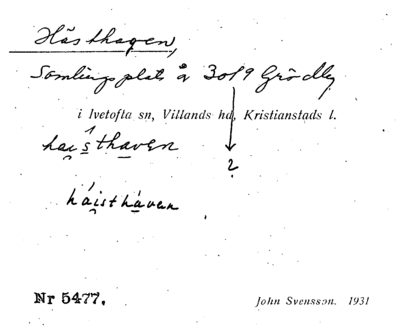 Hästhagen,
Samlingsplats å 3019 Grödby
i Ivetofta sn, Villands hd, Kristianstads l.
hai̯sthaven
?
hái̯stháven
Nr 5477.
John Svensson. 1931